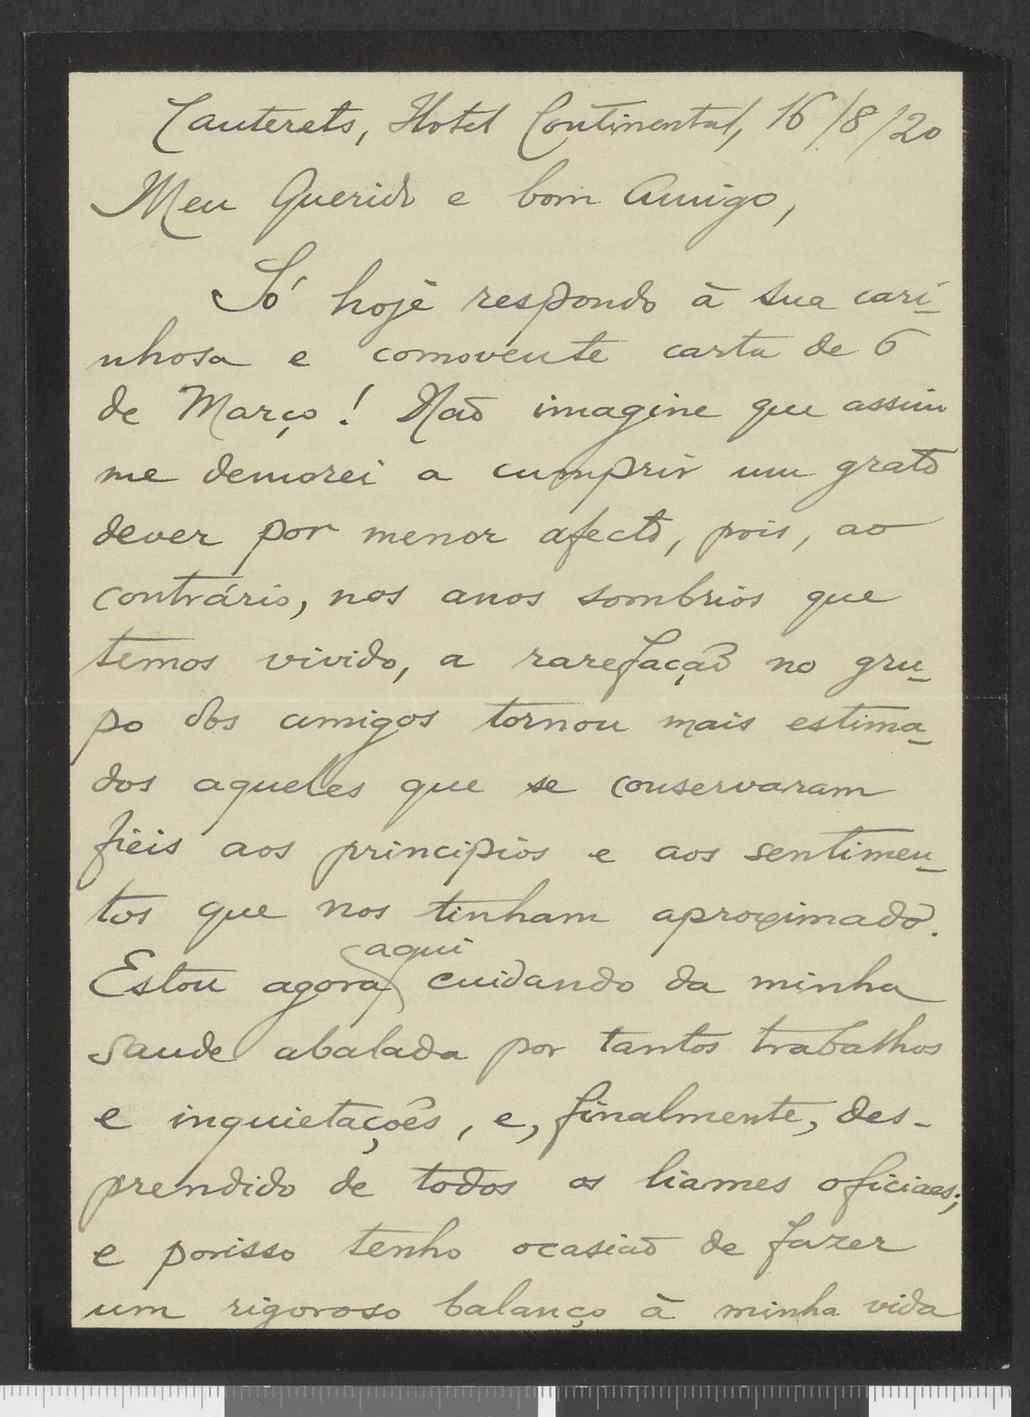 Cauterets, Hotel Continental, 16/8/20
Meu Querido e bom Amigo,
Só hoje respondo à sua cari-
nhosa e comovente carta de 6
de Março! Não imagine que assim
me demorei a cumprir um grato
dever por menor afecto, pois, ao
contrário, nos anos sombrios que
temos vivido, a rarefação no gru-
po dos amigos tornou mais estima-
dos aqueles que se conservaram
fieis aos principios e aos sentimen-
tos que nos tinham aproximado.
Estou agora aqui cuidando da minha
saude abalada por tantos trabalhos
e inquietações, e, finalmente, des-
prendido de todos os liames oficiaes;
e porisso tenho ocasião de fazer
um rigoroso balanço à minha vida